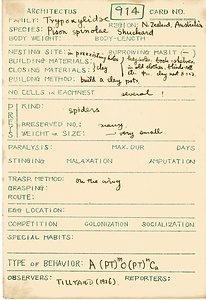 ARCHITECTUS 914 CARD NO.
FAMILY: Trypoxylidae REGION: N. Zealand, Australia
SPECIES: Pison spinolae Shuckard
BODY WEIGHT: BODY-LENGTH
NESTING SITE: in preexisting holes BURROWING HABIT (—)
BUILDING MATERIALS:
CLOSING MATERIALS: clay
BUILDING METHOD: build a clay pots.
NO. CELLS IN EACH NEST several!
PREY KIND: spiders
PRESERVED NO.: many
WEIGHT OR SIZE: very small
PARALYSIS: MAX. DUR DAYS
STINGING MALAXATION AMPUTATION
TRASP. METHOD: on the wing
GRASPING:
ROUTE:
EGG LOCATION:
COMPETITION COLONIZATION SOCIALIZATION
SPECIAL HABITS:
TYPE OF BEHAVIOR: A (PT)ᵐ O (PT)ᵐ Ca
OBSERVERS: TILLYARD (1926) REPORTERS: